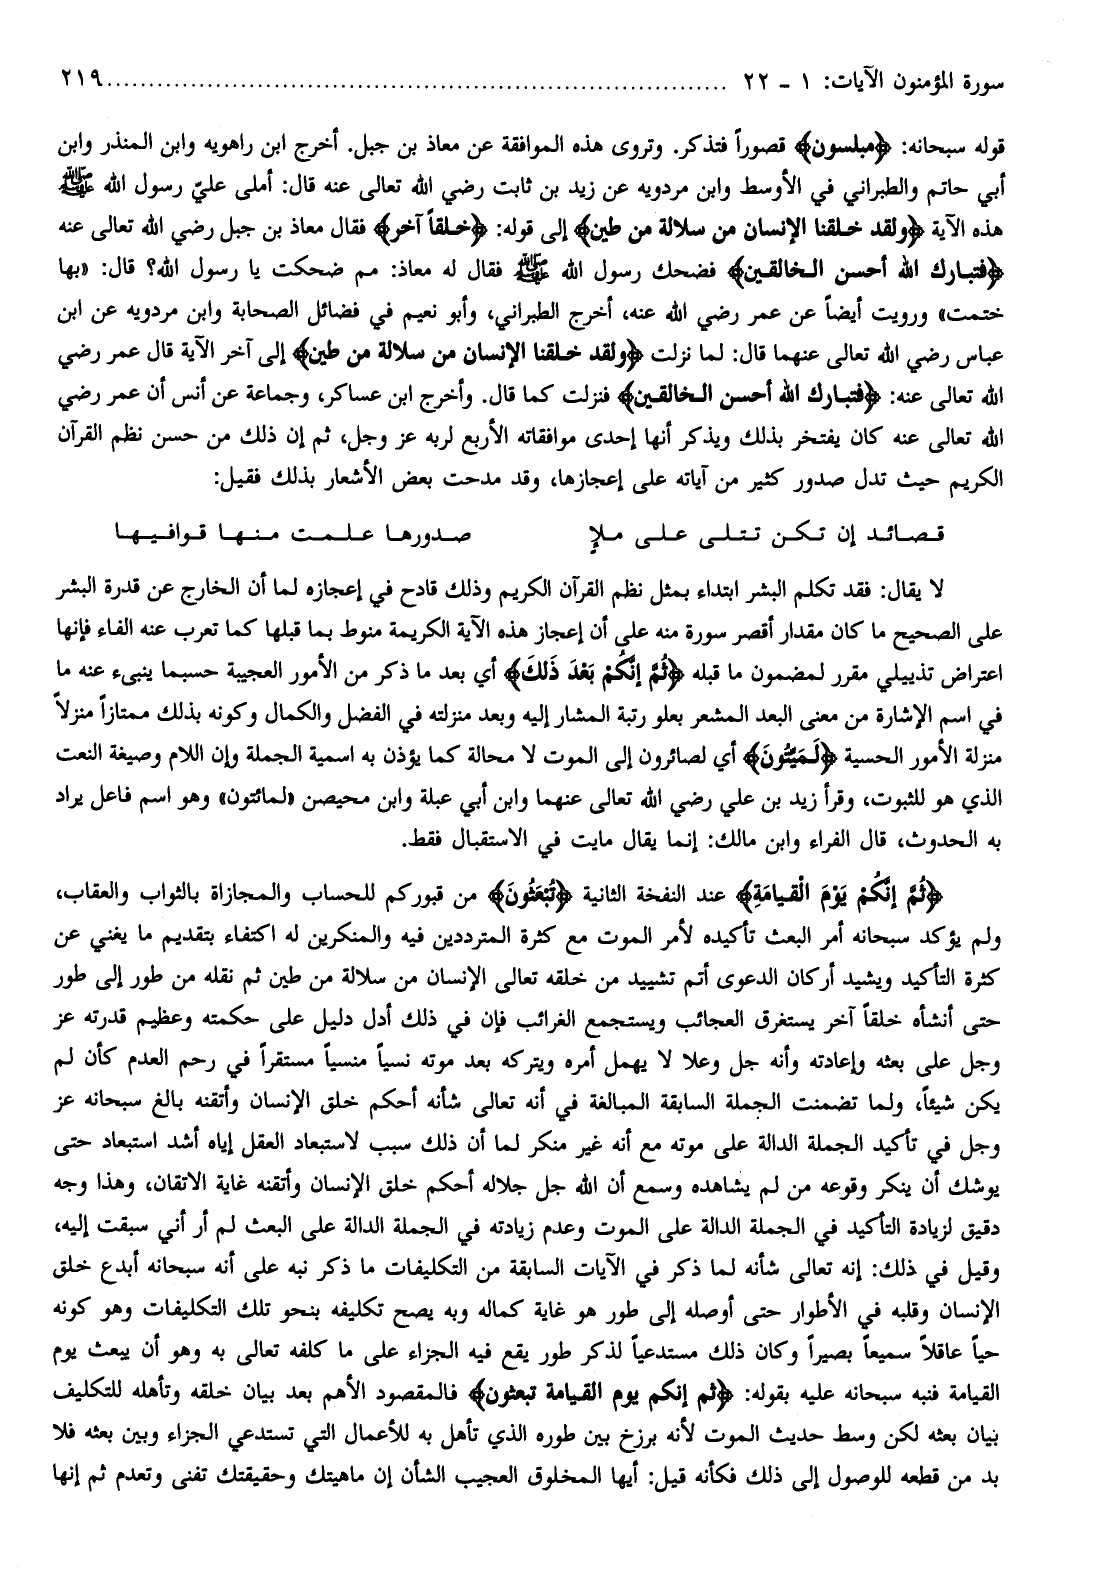 سورة المؤمنون الآيات: ١ - ٢٢ ........................................................................... ٢١٩
قوله سبحانه: ﴿مبلسون﴾ قصوراً فتذكر. وتروى هذه الموافقة عن معاذ بن جبل. أخرج ابن راهويه وابن المنذر وابن
أبي حاتم والطبراني في الأوسط وابن مردويه عن زيد بن ثابت رضي الله تعالى عنه قال: أملى عليّ رسول الله ﷺ
هذه الآية ﴿ولقد خلقنا الإنسان من سلالة من طين﴾ إلى قوله: ﴿خلقاً آخر﴾ فقال معاذ بن جبل رضي الله تعالى عنه
﴿فتبارك الله أحسن الخالقين﴾ فضحك رسول الله ﷺ فقال له معاذ: مم ضحكت يا رسول الله؟ قال: «بها
ختمت» ورويت أيضاً عن عمر رضي الله عنه، أخرج الطبراني، وأبو نعيم في فضائل الصحابة وابن مردويه عن ابن
عباس رضي الله تعالى عنهما قال: لما نزلت ﴿ولقد خلقنا الإنسان من سلالة من طين﴾ إلى آخر الآية قال عمر رضي
الله تعالى عنه: ﴿فتبارك الله أحسن الخالقين﴾ فنزلت كما قال. وأخرج ابن عساكر، وجماعة عن أنس أن عمر رضي
الله تعالى عنه كان يفتخر بذلك ويذكر أنها إحدى موافقاته الأربع لربه عز وجل، ثم إن ذلك من حسن نظم القرآن
الكريم حيث تدل صدور كثير من آياته على إعجازها، وقد مدحت بعض الأشعار بذلك فقيل:
قصائد إن تكن تتلى على ملإ صدورها علمت منها قوافيها
لا يقال: فقد تكلم البشر ابتداء بمثل نظم القرآن الكريم وذلك قادح في إعجازه لما أن الخارج عن قدرة البشر
على الصحيح ما كان مقدار أقصر سورة منه على أن إعجاز هذه الآية الكريمة منوط بما قبلها كما تعرب عنه الفاء فإنها
اعتراض تذييلي مقرر لمضمون ما قبله ﴿ثُمَّ إنَّكُمْ بَعْدَ ذَلكَ﴾ أي بعد ما ذكر من الأمور العجيبة حسبما ينبىء عنه ما
في اسم الإشارة من معنى البعد المشعر بعلو رتبة المشار إليه وبعد منزلته في الفضل والكمال وكونه بذلك ممتازاً منزلاً
منزلة الأمور الحسية ﴿لَمَيِّتُونَ﴾ أي لصائرون إلى الموت لا محالة كما يؤذن به اسمية الجملة وإن اللام وصيغة النعت
الذي هو للثبوت، وقرأ زيد بن علي رضي الله تعالى عنهما وابن أبي عبلة وابن محيصن «لمائتون» وهو اسم فاعل يراد
به الحدوث، قال الفراء وابن مالك: إنما يقال مايت في الاستقبال فقط.
﴿ثُمَّ إنَّكُمْ يَوْمَ الْقيامَةِ﴾ عند النفخة الثانية ﴿تُبْعَثُونَ﴾ من قبوركم للحساب والمجازاة بالثواب والعقاب،
ولم يؤكد سبحانه أمر البعث تأكيده لأمر الموت مع كثرة المترددين فيه والمنكرين له اكتفاء بتقديم ما يغني عن
كثرة التأكيد ويشيد أركان الدعوى أتم تشييد من خلقه تعالى الإنسان من سلالة من طين ثم نقله من طور إلى طور
حتى أنشأه خلقاً آخر يستغرق العجائب ويستجمع الغرائب فإن في ذلك أدل دليل على حكمته وعظيم قدرته عز
وجل على بعثه وإعادته وأنه جل وعلا لا يهمل أمره ويتركه بعد موته نسياً منسياً مستقراً في رحم العدم كأن لم
يكن شيئاً، ولما تضمنت الجملة السابقة المبالغة في أنه تعالى شأنه أحكم خلق الإنسان وأتقنه بالغ سبحانه عز
وجل في تأكيد الجملة الدالة على موته مع أنه غير منكر لما أن ذلك سبب لاستبعاد العقل إياه أشد استبعاد حتى
يوشك أن ينكر وقوعه من لم يشاهده وسمع أن الله جل جلاله أحكم خلق الإنسان وأتقنه غاية الاتقان، وهذا وجه
دقيق لزيادة التأكيد في الجملة الدالة على الموت وعدم زيادته في الجملة الدالة على البعث لم أر أني سبقت إليه،
وقيل في ذلك: إنه تعالى شأنه لما ذكر في الآيات السابقة من التكليفات ما ذكر نبه على أنه سبحانه أبدع خلق
الإنسان وقلبه في الأطوار حتى أوصله إلى طور هو غاية كماله وبه يصح تكليفه بنحو تلك التكليفات وهو كونه
حياً عاقلاً سميعاً بصيراً وكان ذلك مستدعياً لذكر طور يقع فيه الجزاء على ما كلفه تعالى به وهو أن يبعث يوم
القيامة فنبه سبحانه عليه بقوله: ﴿ثم إنكم يوم القيامة تبعثون﴾ فالمقصود الأهم بعد بيان خلقه وتأهله للتكليف
بيان بعثه لكن وسط حديث الموت لأنه برزخ بين طوره الذي تأهل به للأعمال التي تستدعي الجزاء وبين بعثه فلا
بد من قطعه للوصول إلى ذلك فكأنه قيل: أيها المخلوق العجيب الشأن إن ماهيتك وحقيقتك تفنى وتعدم ثم إنها